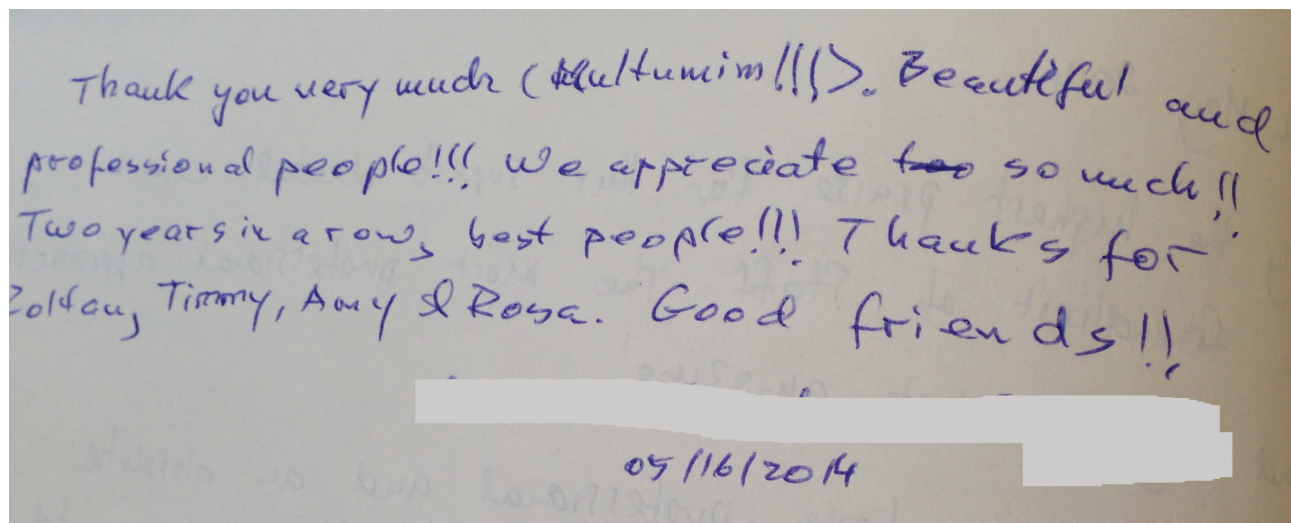 Thank you very much (Multumim!!!). Beautiful and
professional people!!! We appreciate so much!!
Two years in a row, best people!!! Thanks for
Zoltan, Timmy, Amy & Rosa. Good friends!!
05/16/2014